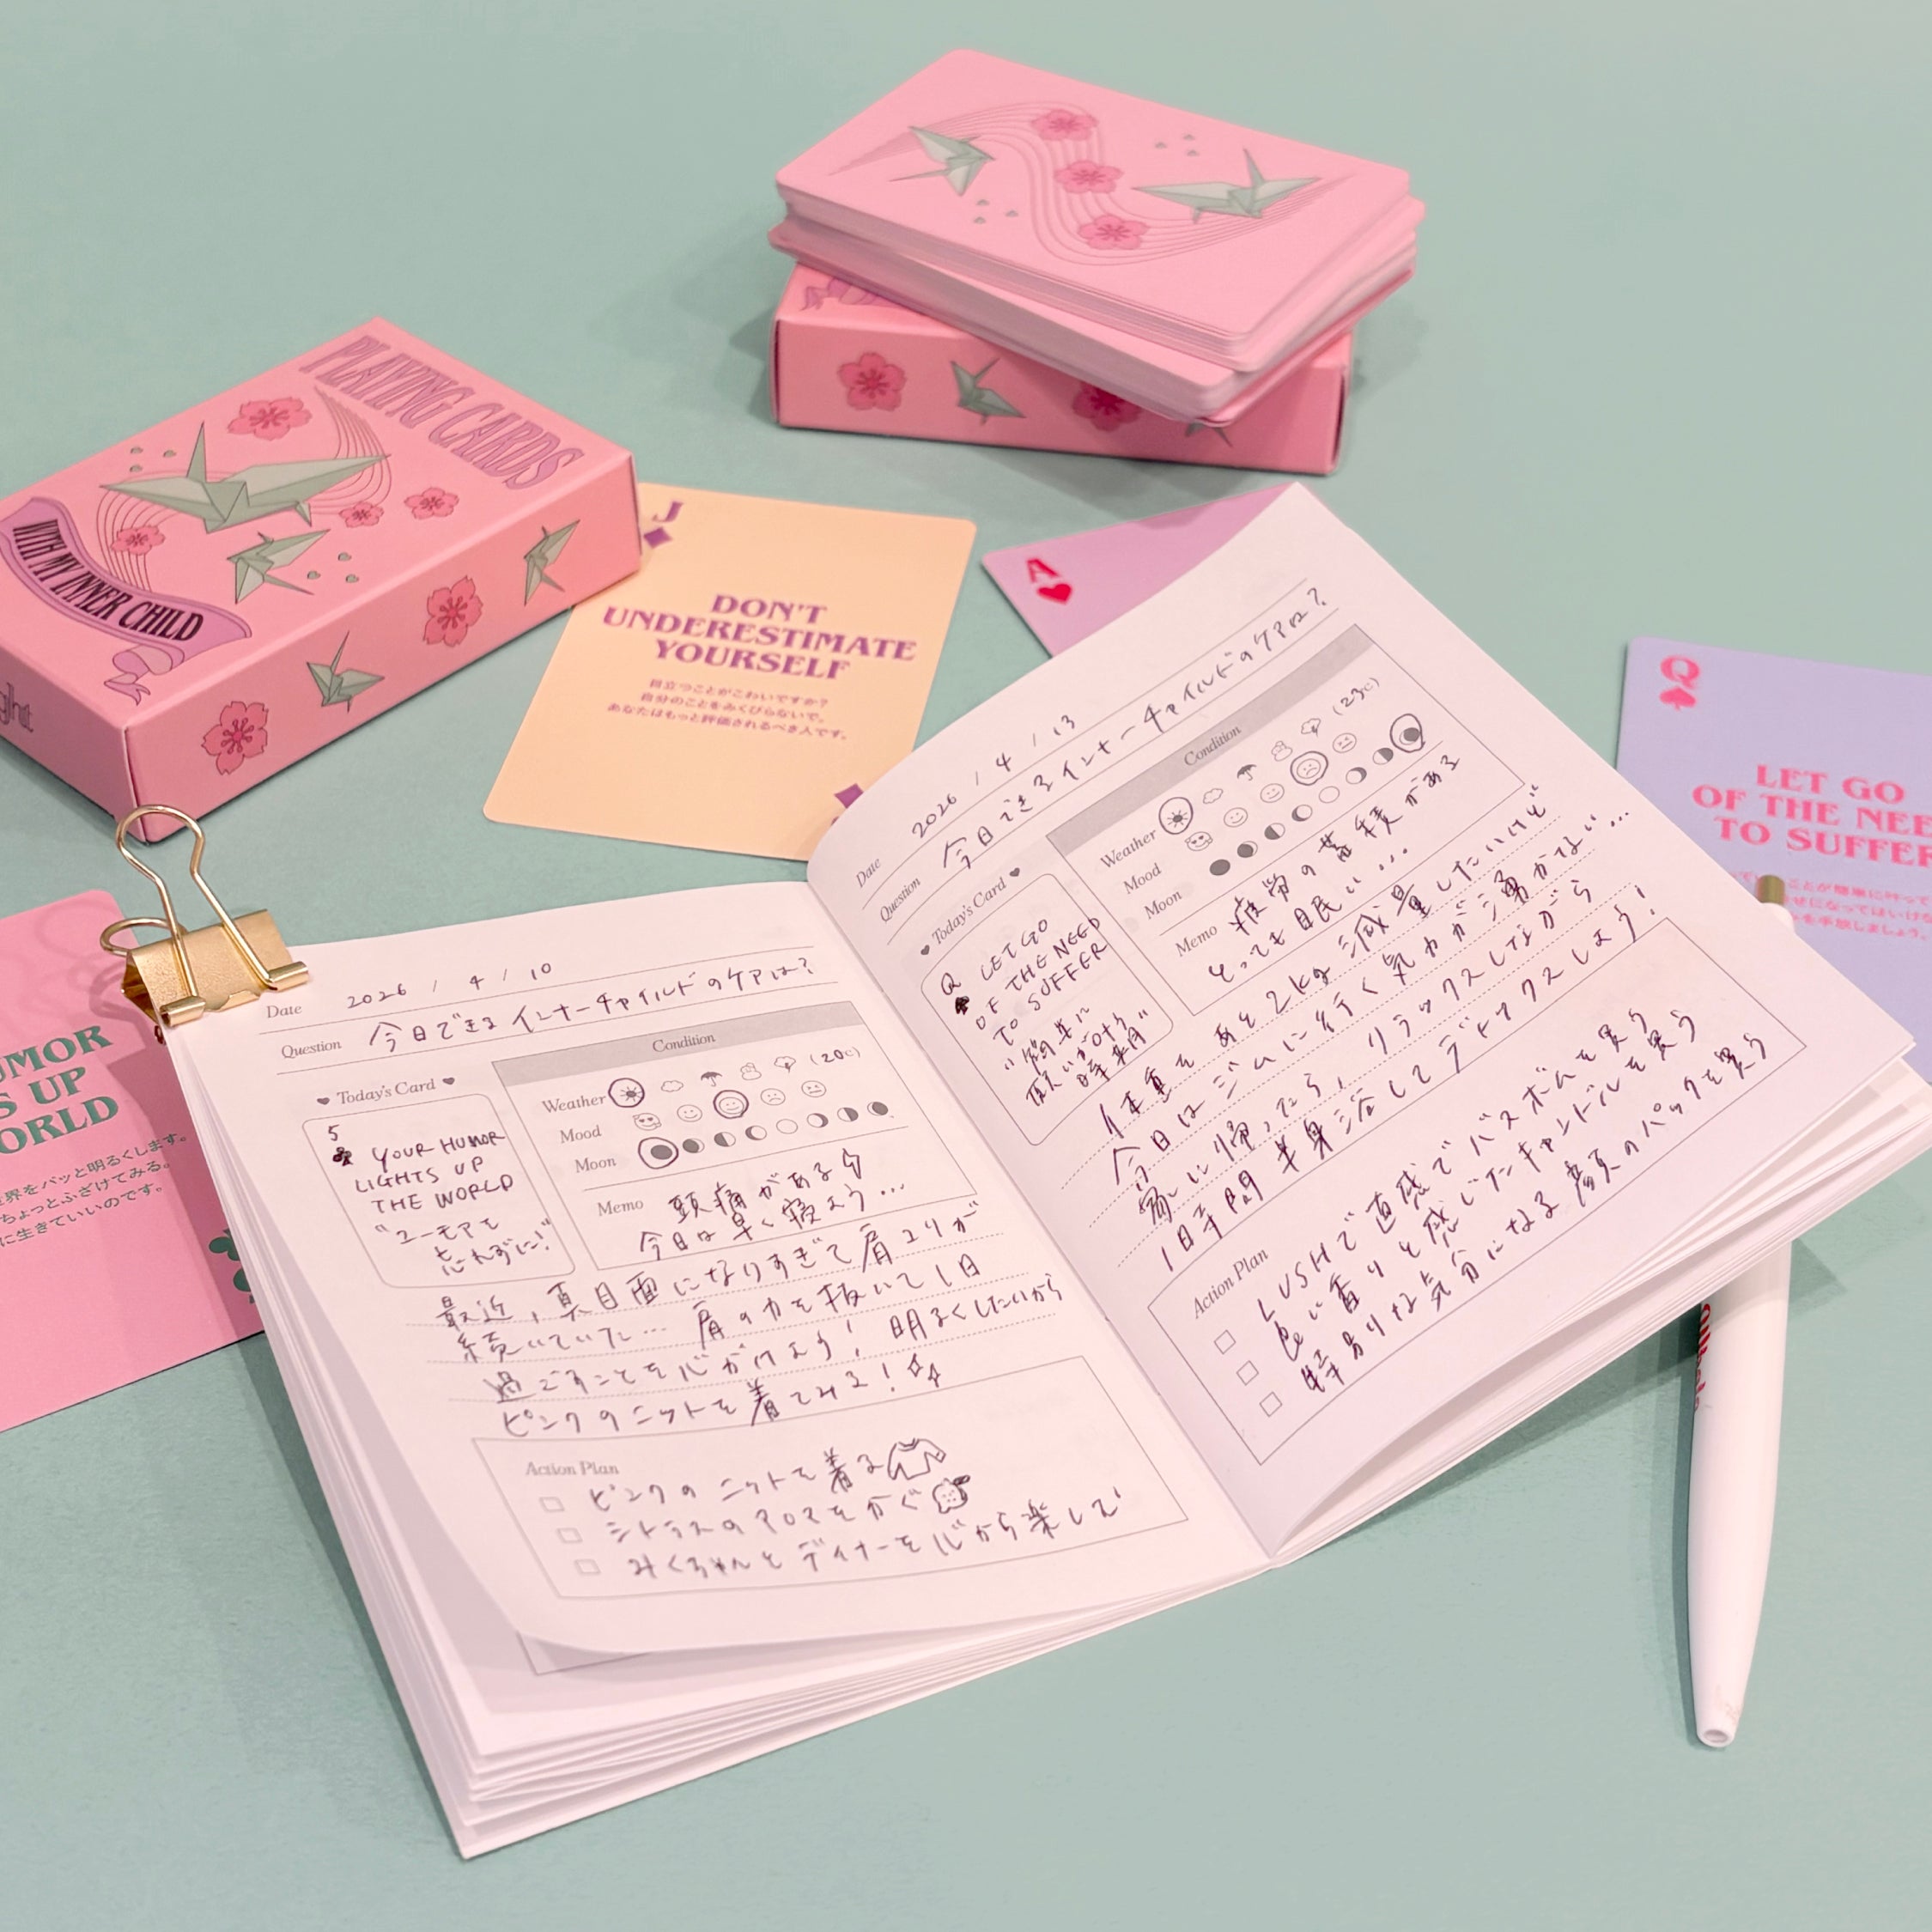 PLAYING CARDS
WITH MY INNER CHILD
J
DON'T
UNDERESTIMATE
YOURSELF
目立つことがこわいですか？
自分のことをみくびらないで。
あなたはもっと評価されるべき人です。
A
Q
LET GO
OF THE NEE
TO SUFFER
UMOR
S UP
ORLD
界をパッと明るくします。
ちょっとふざけてみる。
に生きていいのです。
Date 2026 / 4 / 10
Question 今日できるインナーチャイルドのケアは？
Today's Card
5
YOUR HUMOR
LIGHTS UP
THE WORLD
"ユーモアを
忘れずに！"
Condition
Weather (20℃)
Mood
Moon
Memo 頭痛がある
今日は早く寝よう…
最近，真面目になりすぎて肩コリが
続いていた… 肩の力を抜いて1日
過ごすことを心がけよう！ 明るくしたいから
ピンクのニットを着てみる！
Action Plan
ピンクのニットを着る
シトラスのアロマを
みくちゃんとディナーを心から楽しむ
Date 2026 / 4 / 13
Question 今日できるインナーチャイルドのケアは？
Today's Card
Q LET GO
OF THE NEED
TO SUFFER
"簡単に
願いが叶う
時期"
Condition
Weather (23℃)
Mood
Moon
Memo 疲労の蓄積がある
とっても眠い…
体重をあと2kg減量したいけど
今日はジムに行く気力が湧かない…
家に帰ったら，リラックスしながら
1時間半身浴してデトックスしよう！
Action Plan
LUSHで直感でバスボムを買う
良い香りと感じたキャンドルを買う
特別な気分になる顔のパックを買う